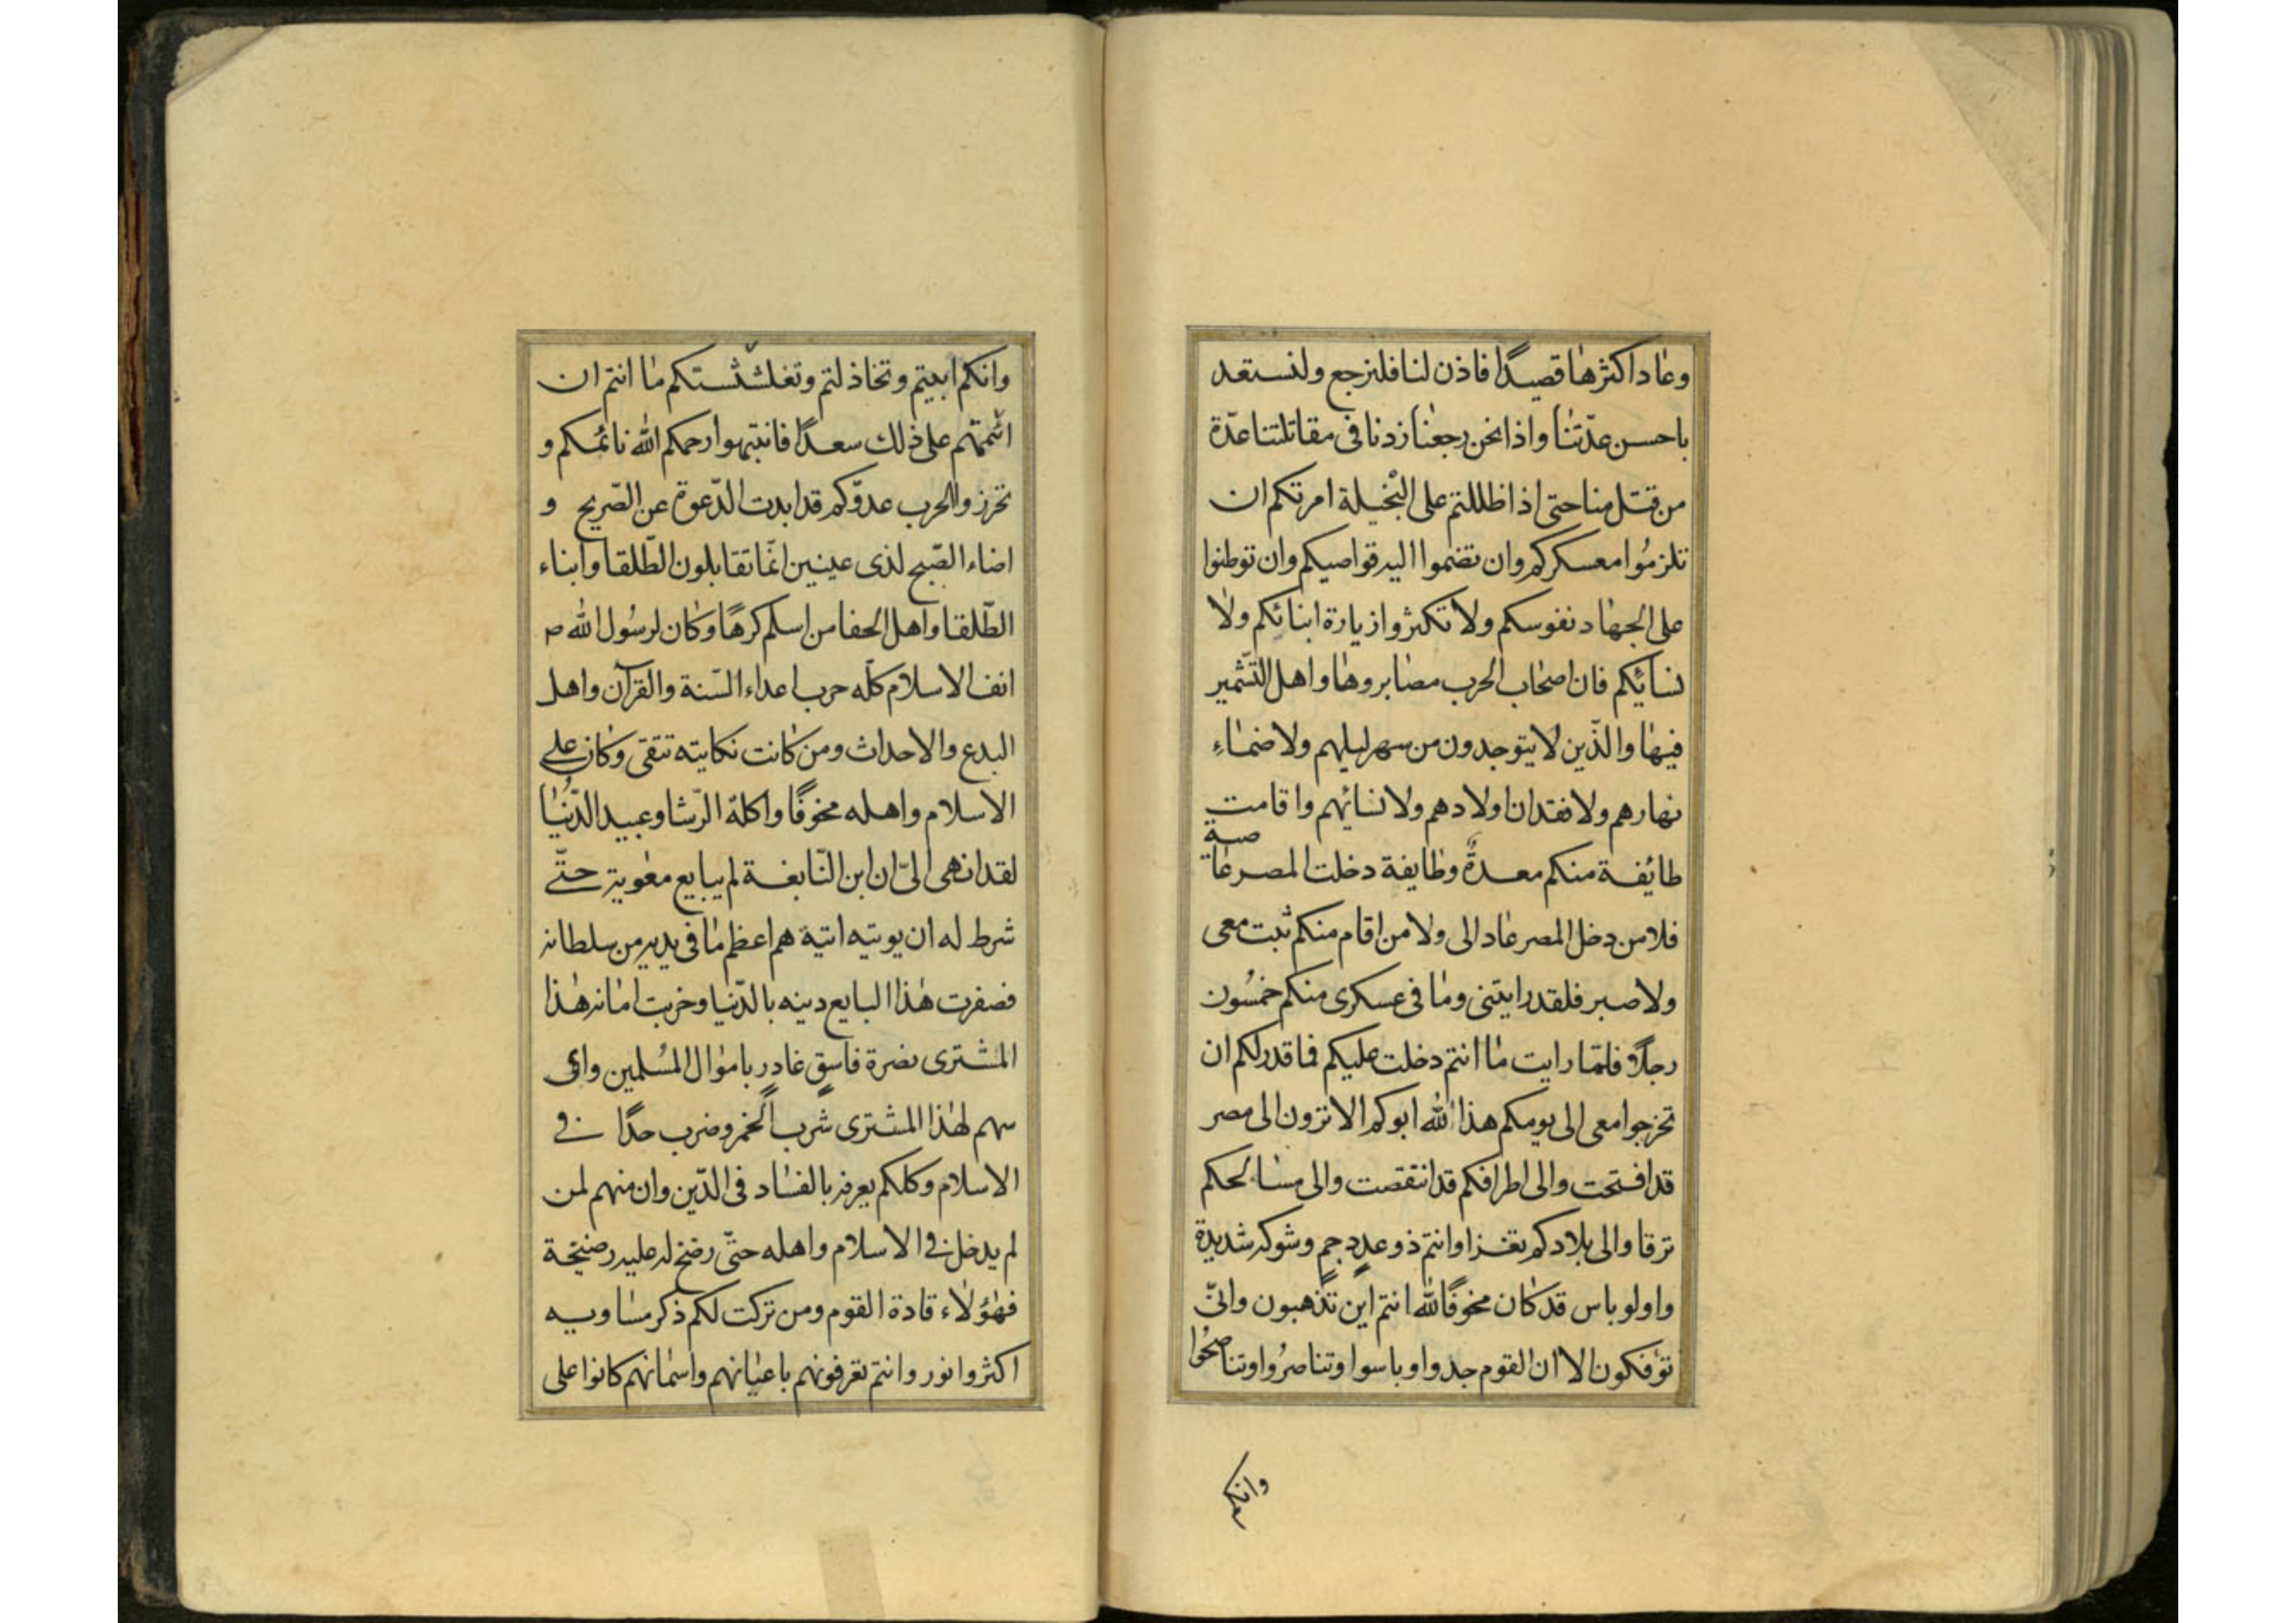 وعاد اكثرها قصيدًا فاذن لنا فلنرجع ولنستعد
باحسن عدّتنا واذا نحن رجعنا زدنا فى مقاتلتنا عدّة
من قتل منا حتى اذا ظللتم على النخيلة امرتكم ان
تلزموا معسكركم وان تضموا اليه قواصيكم وان توطنوا
على الجهاد نفوسكم ولا تكثروا زيارة ابنائكم ولا
نسائكم فان اصحاب الحرب مصابروها واهل التشمير
فيها والذّين لا يتوجدون من سهر ليلهم ولا ضماء
نهارهم ولا فقدان اولادهم ولا نسائهم واقامت
طائفة منكم معدةٌ وطايفة دخلت المصر عاصية
فلا من دخل المصر عاد الى ولا من اقام منكم ثبت معى
ولا صبر فلقد رايتنى وما فى عسكرى منكم خمسون
رجلاً فلمّا رايت ما انتم دخلت عليكم فما قدر لكم ان
تخرجوا معى الى يومكم هذا لله ابوكم الا ترون الى مصر
قد افتتحت والى اطرافكم قد انتقصت والى مسالحكم
ترقا والى بلادكم تغزا وانتم ذو عددٍ جمٍ وشوكه شديدة
واولو باس قد كان مخوفًا لله انتم اين تذهبون وانّى
تؤفكون الا ان القوم جدوا وباسوا وتناصروا وتناصحوا
وانكم
وانكم ابيتم وتخاذلتم وتغششتكم ما انتم ان
اتممتم على ذلك سعدًا فانتبهوا رحمكم الله نائمكم و
تحرزوا لحرب عدوّكم قد ابدت الدّعوة عن الصّريح و
اضاء الصّبح لذى عينين انمّا تقابلون الطّلقا وابناء
الطّلقا واهل الجفا من اسلم كرهًا وكان لرسول الله ص
انف الاسلام كلّه حربا اعداء السّنة والقرآن واهل
البدع والاحداث ومن كانت نكايته تتقى وكان على
الاسلام واهله مخوفًا واكلة الرّشا وعبيد الدّنيا
لقد انهى الىّ ان ابن النّابغة لم يبايع معوية حتّى
شرط له ان يوتيه اتية هم اعظم ما فى يديه من سلطانه
فصفرت هذا البايع دينه بالدّنيا وخربت امانه هذا
المشترى نصرة فاسقٍ غادرٍ باموال المسلمين واى
سهم لهذا المشترى شرب الخمر وضرب حدًا فى
الاسلام وكلكم يعرفه بالفساد فى الدّين وان منهم لمن
لم يدخل فى الاسلام واهله حتّى رضخ له عليه رضيخة
فهؤلاء قادة القوم ومن تركت لكم ذكر مساويه
اكثر وانور وانتم تعرفونهم باعيانهم واسمائهم كانوا على